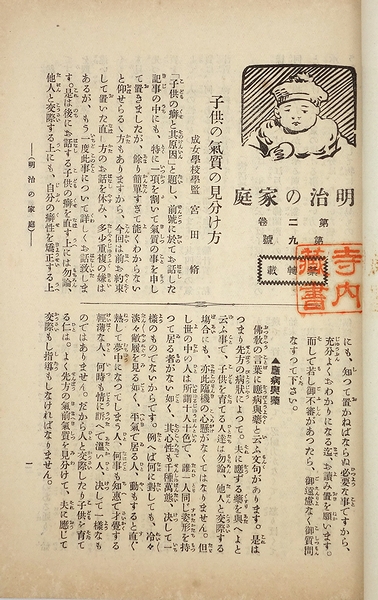 明治の家庭
第二卷
第九號
禁轉載
寺内藏書
子供の氣質の見分け方
成女學校學監 宮田脩
「子供の癖と其原因」と題し、前號に於てお話した
記事の中にも、特に一項を割いて氣質の事を申し
て置きましたが、餘り簡單すぎて能くわからない
と仰せらるゝ方もありますから、今回は前お約束
して置いた直し方のお話を休み、多少重複の嫌は
あるが、もう一度此事について詳しくお話致しま
す。是は後にお話する子供の癖を直す上には勿論、
他人と交際する上にも、自分の癖性を矯正する上
にも、知つて置かねばならぬ必要な事ですから、
充分よくおわかりになる迄、お讀みを願います。
而して若し御不審があつたら、御遠慮なく御質問
なすつて下さい。
▲應病與藥
佛敎の言葉に應病與藥と云ふ文句があります。是は
つまり先方の病狀によつて、夫に應ずる藥を與へよと
云ふ事で、子供を育てる人達は勿論、他人と交際する
塲合にも、亦此臨機の心懸がなくてはなりません。但
し世の中の人は所謂十人十色で、誰一人同じ姿形を持
つて居る者がない如く、其心性も千種萬態、決して一
樣のものはないからです。例へば何に對しても、冷々
淡々敵履を見る如く、平氣で居る人、動もすると直ぐ
熱して夢中になつてしまう人、何事も如意で才覺する
輕薄な人、何時も情に脆い、溫い人、決して一樣なも
のではありません。だから人と交際したり子供を育て
る仁は。よく先方の氣前氣質を見分けて、夫に應じて
交際もし指導もしなければなりません。
――(明治の家庭)――
一